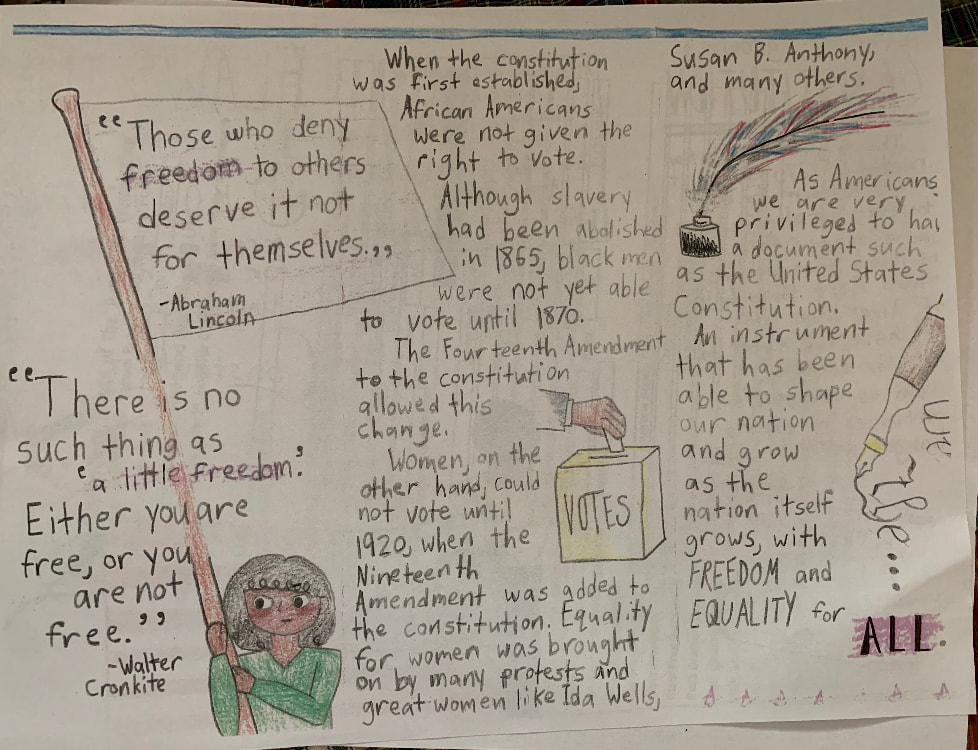 “Those who deny
freedom to others
deserve it not
for themselves.”
-Abraham
Lincoln
“There is no
such thing as
‘a little freedom.’
Either you are
free, or you
are not
free.”
-Walter
Cronkite
When the constitution
was first established,
African Americans
were not given the
right to vote.
Although slavery
had been abolished
in 1865, black men
were not yet able
to vote until 1870.
The Fourteenth Amendment
to the constitution
allowed this
change.
Women, on the
other hand, could
not vote until
1920, when the
Nineteenth
Amendment was added to
the constitution. Equality
for women was brought
on by many protests and
great women like Ida Wells,
VOTES
Susan B. Anthony,
and many others.
As Americans
we are very
privileged to
a document such
as the United States
Constitution.
An instrument
that has been
able to shape
our nation
and grow
as the
nation itself
grows, with
FREEDOM and
EQUALITY for
ALL.
We
the...